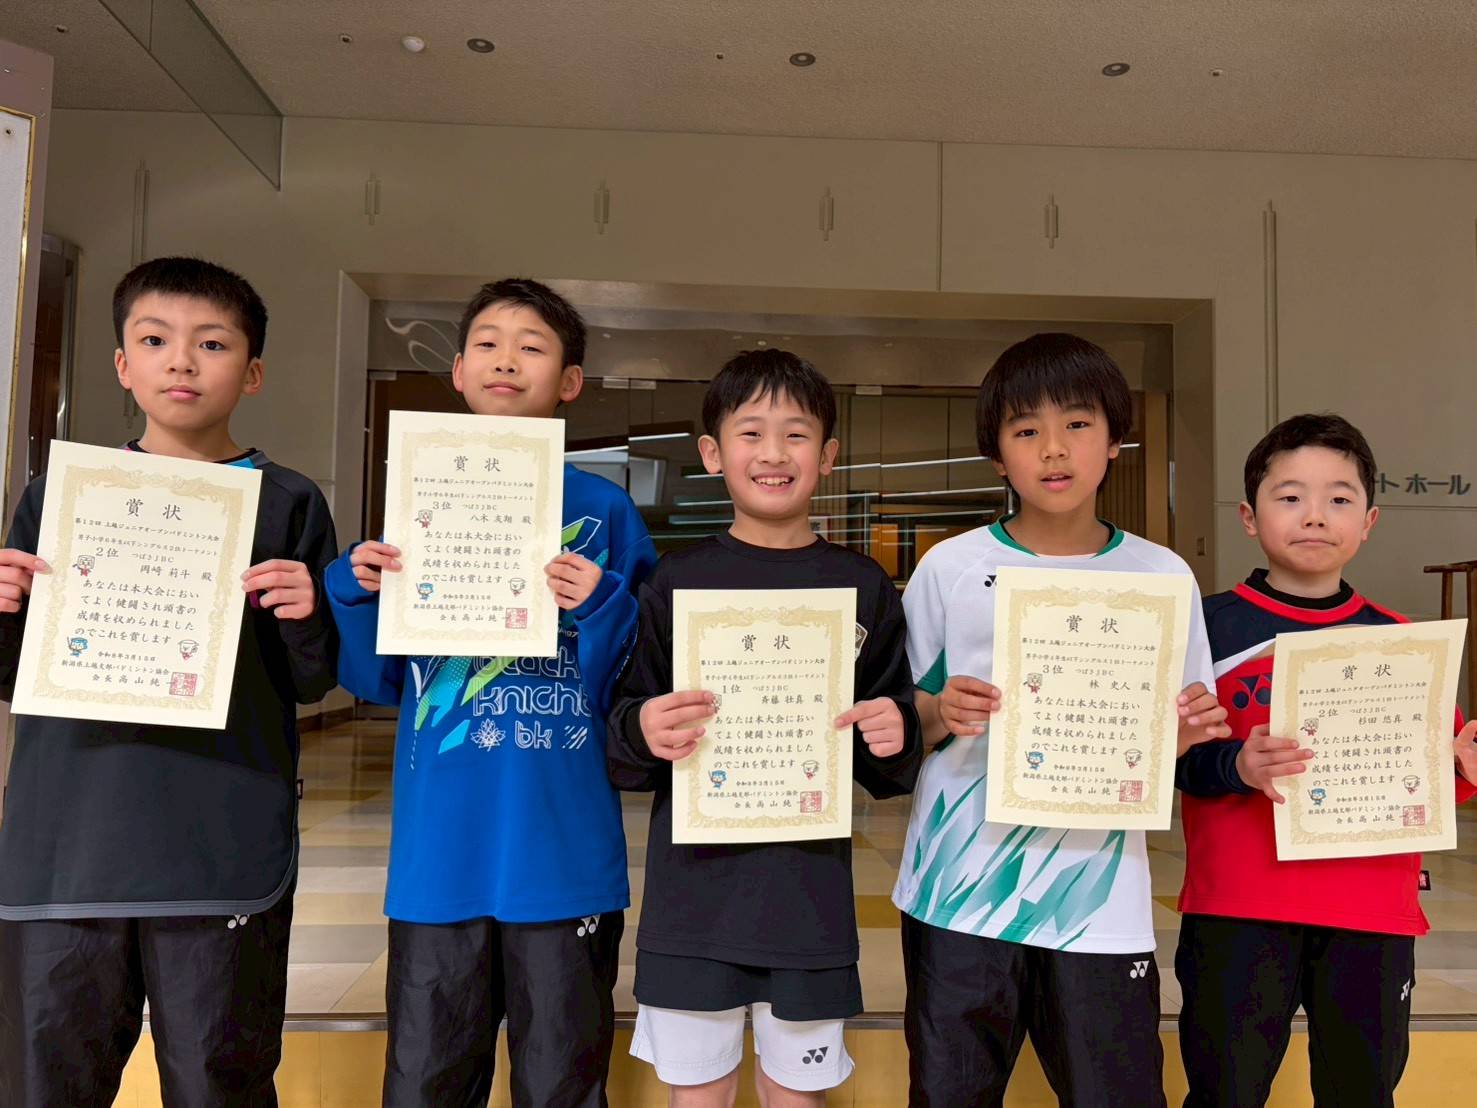 賞状
第12回 上越ジュニアオープンバドミントン大会
男子小学6年生以下シングルス2部トーナメント
2位 つばさJBC
岡﨑 莉斗 殿
あなたは本大会におい
てよく健闘され頭書の
成績を収められました
のでこれを賞します
令和8年3月15日
新潟県上越支部バドミントン協会
会長 高山純一
賞状
第12回 上越ジュニアオープンバドミントン大会
男子小学6年生以下シングルス2部トーナメント
3位 つばさJBC
八木 友翔 殿
あなたは本大会におい
てよく健闘され頭書の
成績を収められました
のでこれを賞します
令和8年3月15日
新潟県上越支部バドミントン協会
会長 高山純一
black
knight
bk
賞状
第12回 上越ジュニアオープンバドミントン大会
男子小学4年生以下シングルス2部トーナメント
1位 つばさJBC
斉藤 壮真 殿
あなたは本大会におい
てよく健闘され頭書の
成績を収められました
のでこれを賞します
令和8年3月15日
新潟県上越支部バドミントン協会
会長 高山純一
賞状
第12回 上越ジュニアオープンバドミントン大会
男子小学4年生以下シングルス1部トーナメント
3位 つばさJBC
林 史人 殿
あなたは本大会におい
てよく健闘され頭書の
成績を収められました
のでこれを賞します
令和8年3月15日
新潟県上越支部バドミントン協会
会長 高山純一
賞状
第12回 上越ジュニアオープンバドミントン大会
男子小学2年生以下シングルス1部トーナメント
2位 つばさJBC
杉田 悠真 殿
あなたは本大会におい
てよく健闘され頭書の
成績を収められました
のでこれを賞します
令和8年3月15日
新潟県上越支部バドミントン協会
会長 高山純一
ト ホール